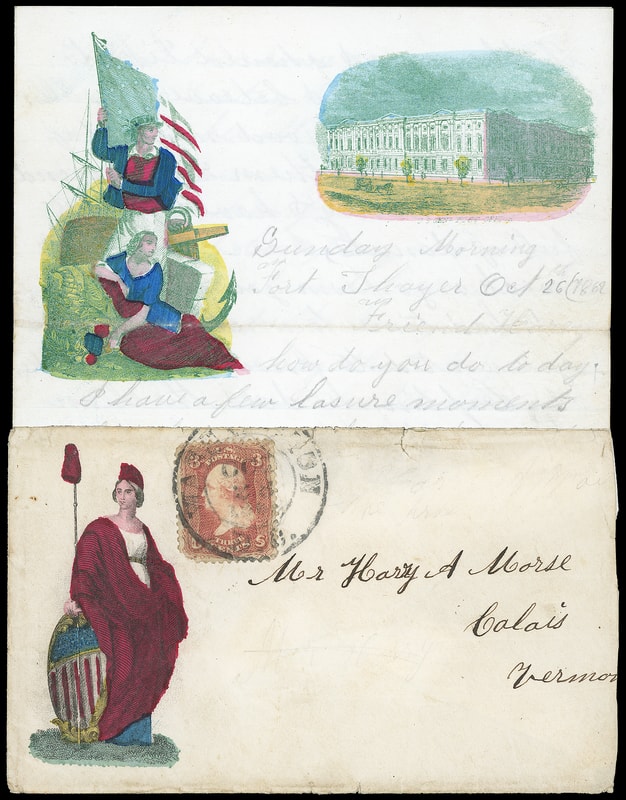 Sunday Morning
Fort Thayer Oct 26 1862
Friend H
how do you do to day.
I have a few lasure moments
WASHINGTON
U.S.
POSTAGE
3 3
THREE
CENTS
U S
Mr Harry A Morse
Calais
Vermon